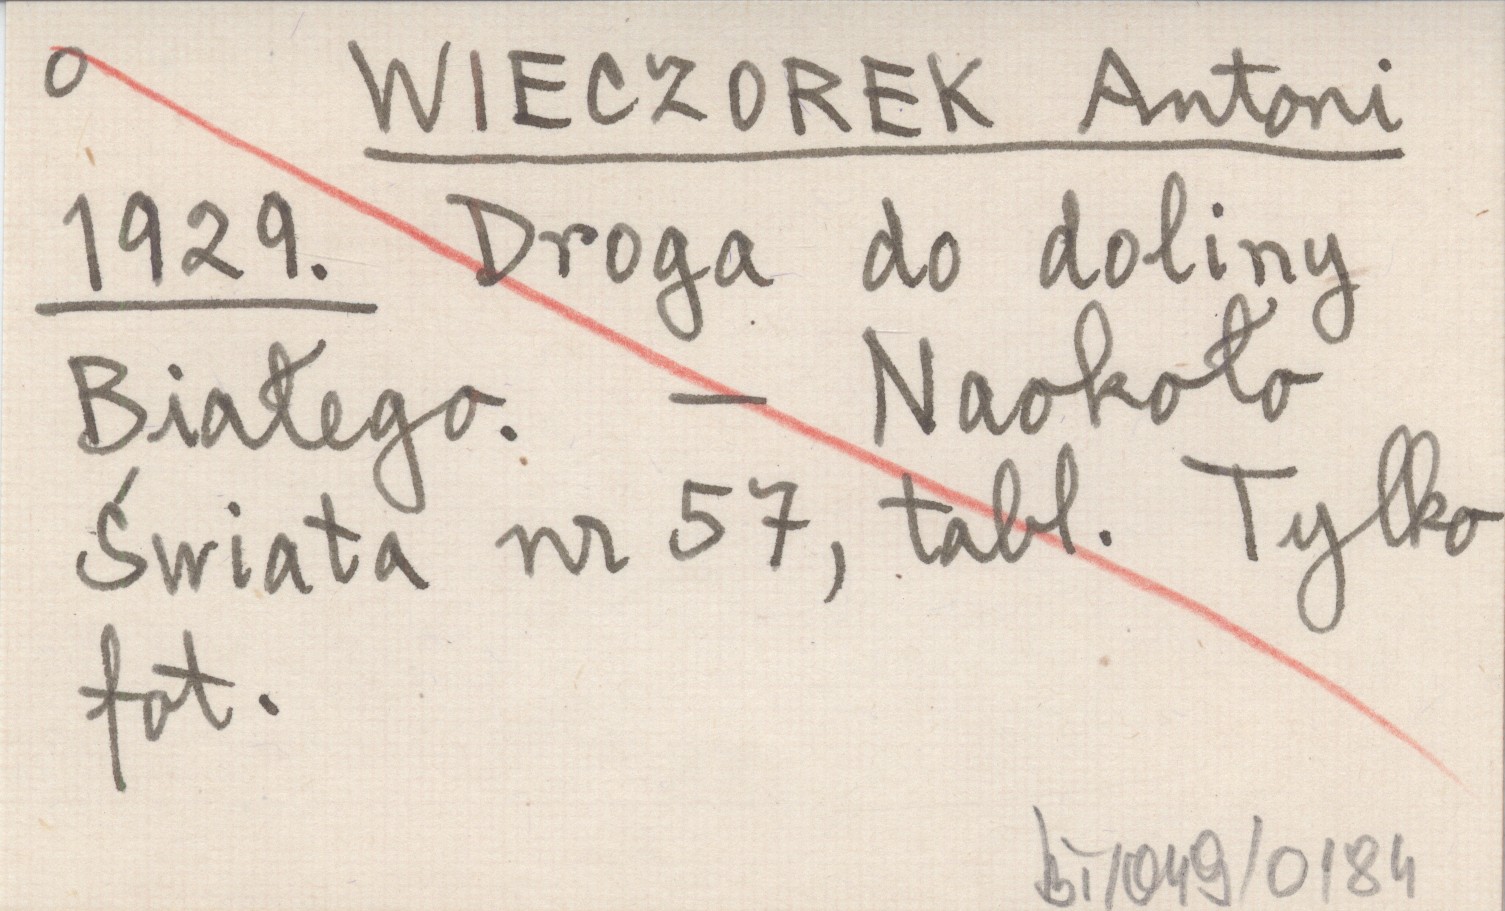 o WIECZOREK Antoni
1929. Droga do doliny
Białego. — Naokoło
Świata nr 57, tabl. Tylko
fot.
bi/049/0184